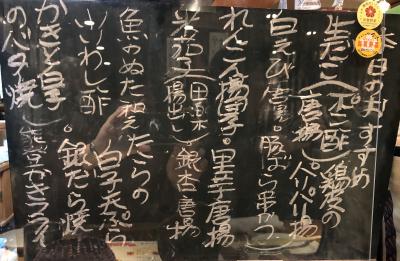 本日のおすすめ
生だこ(ポン酢 唐揚)鶏皮のパリパリ揚
白えび唐揚。豚ばら串かつ
れんこん揚団子。里芋唐揚
米茄子(田楽 揚出し)。銀杏唐揚
魚のぬた和え たらの白子天ぷら
いわし酢。銀だら焼
かきと白子のバター焼(能登かき